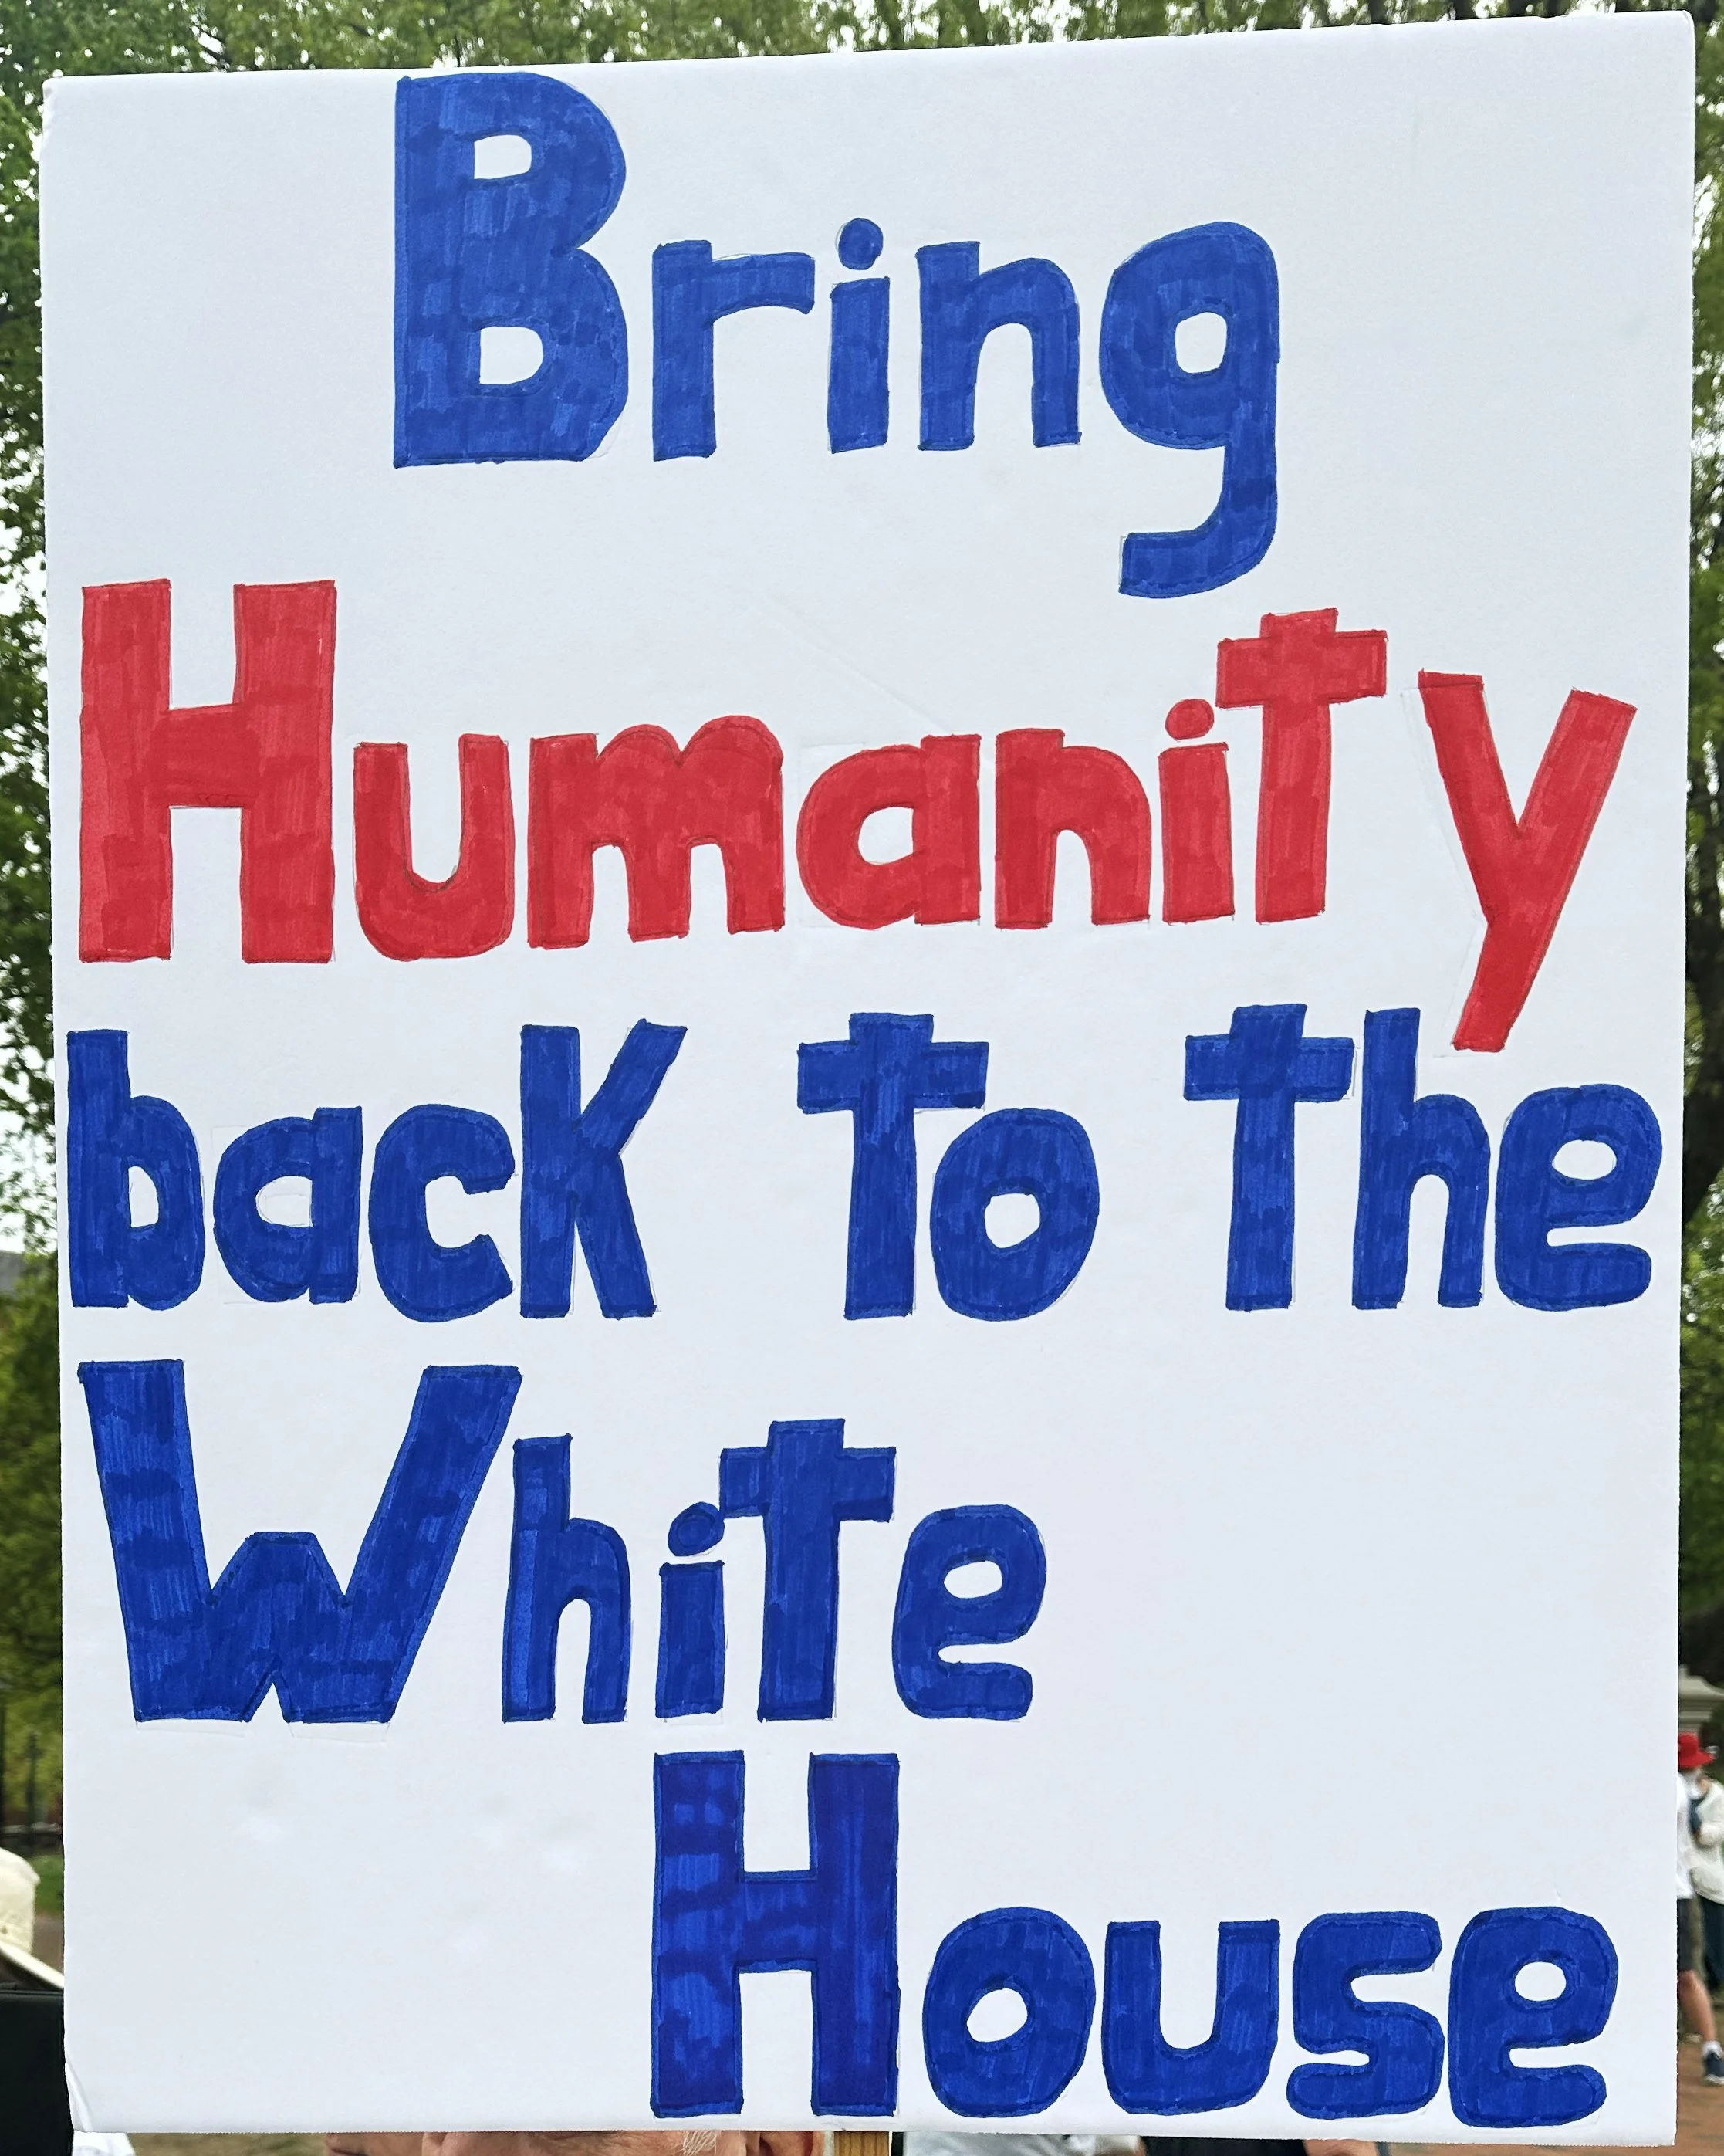 Bring
Humanity
back to the
White
House